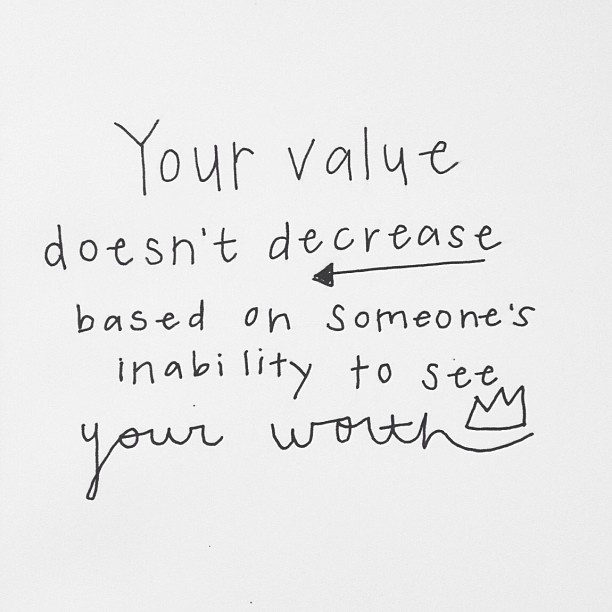 Your value
doesn't decrease
based on someone's
inability to see
your worth